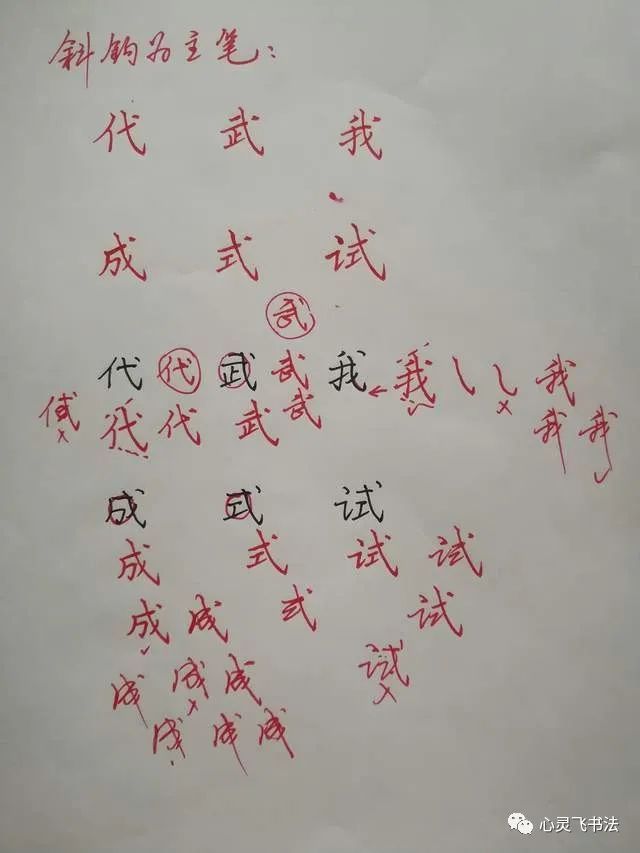 斜钩为主笔：
代 武 我
成 式 试
武
代 代 武 武 我 我 我
代 代 代 武 武 我 我
成 式 试
成 式 试 试
成 成 式 试
试
成 成 成
成 成 成
心灵飞书法